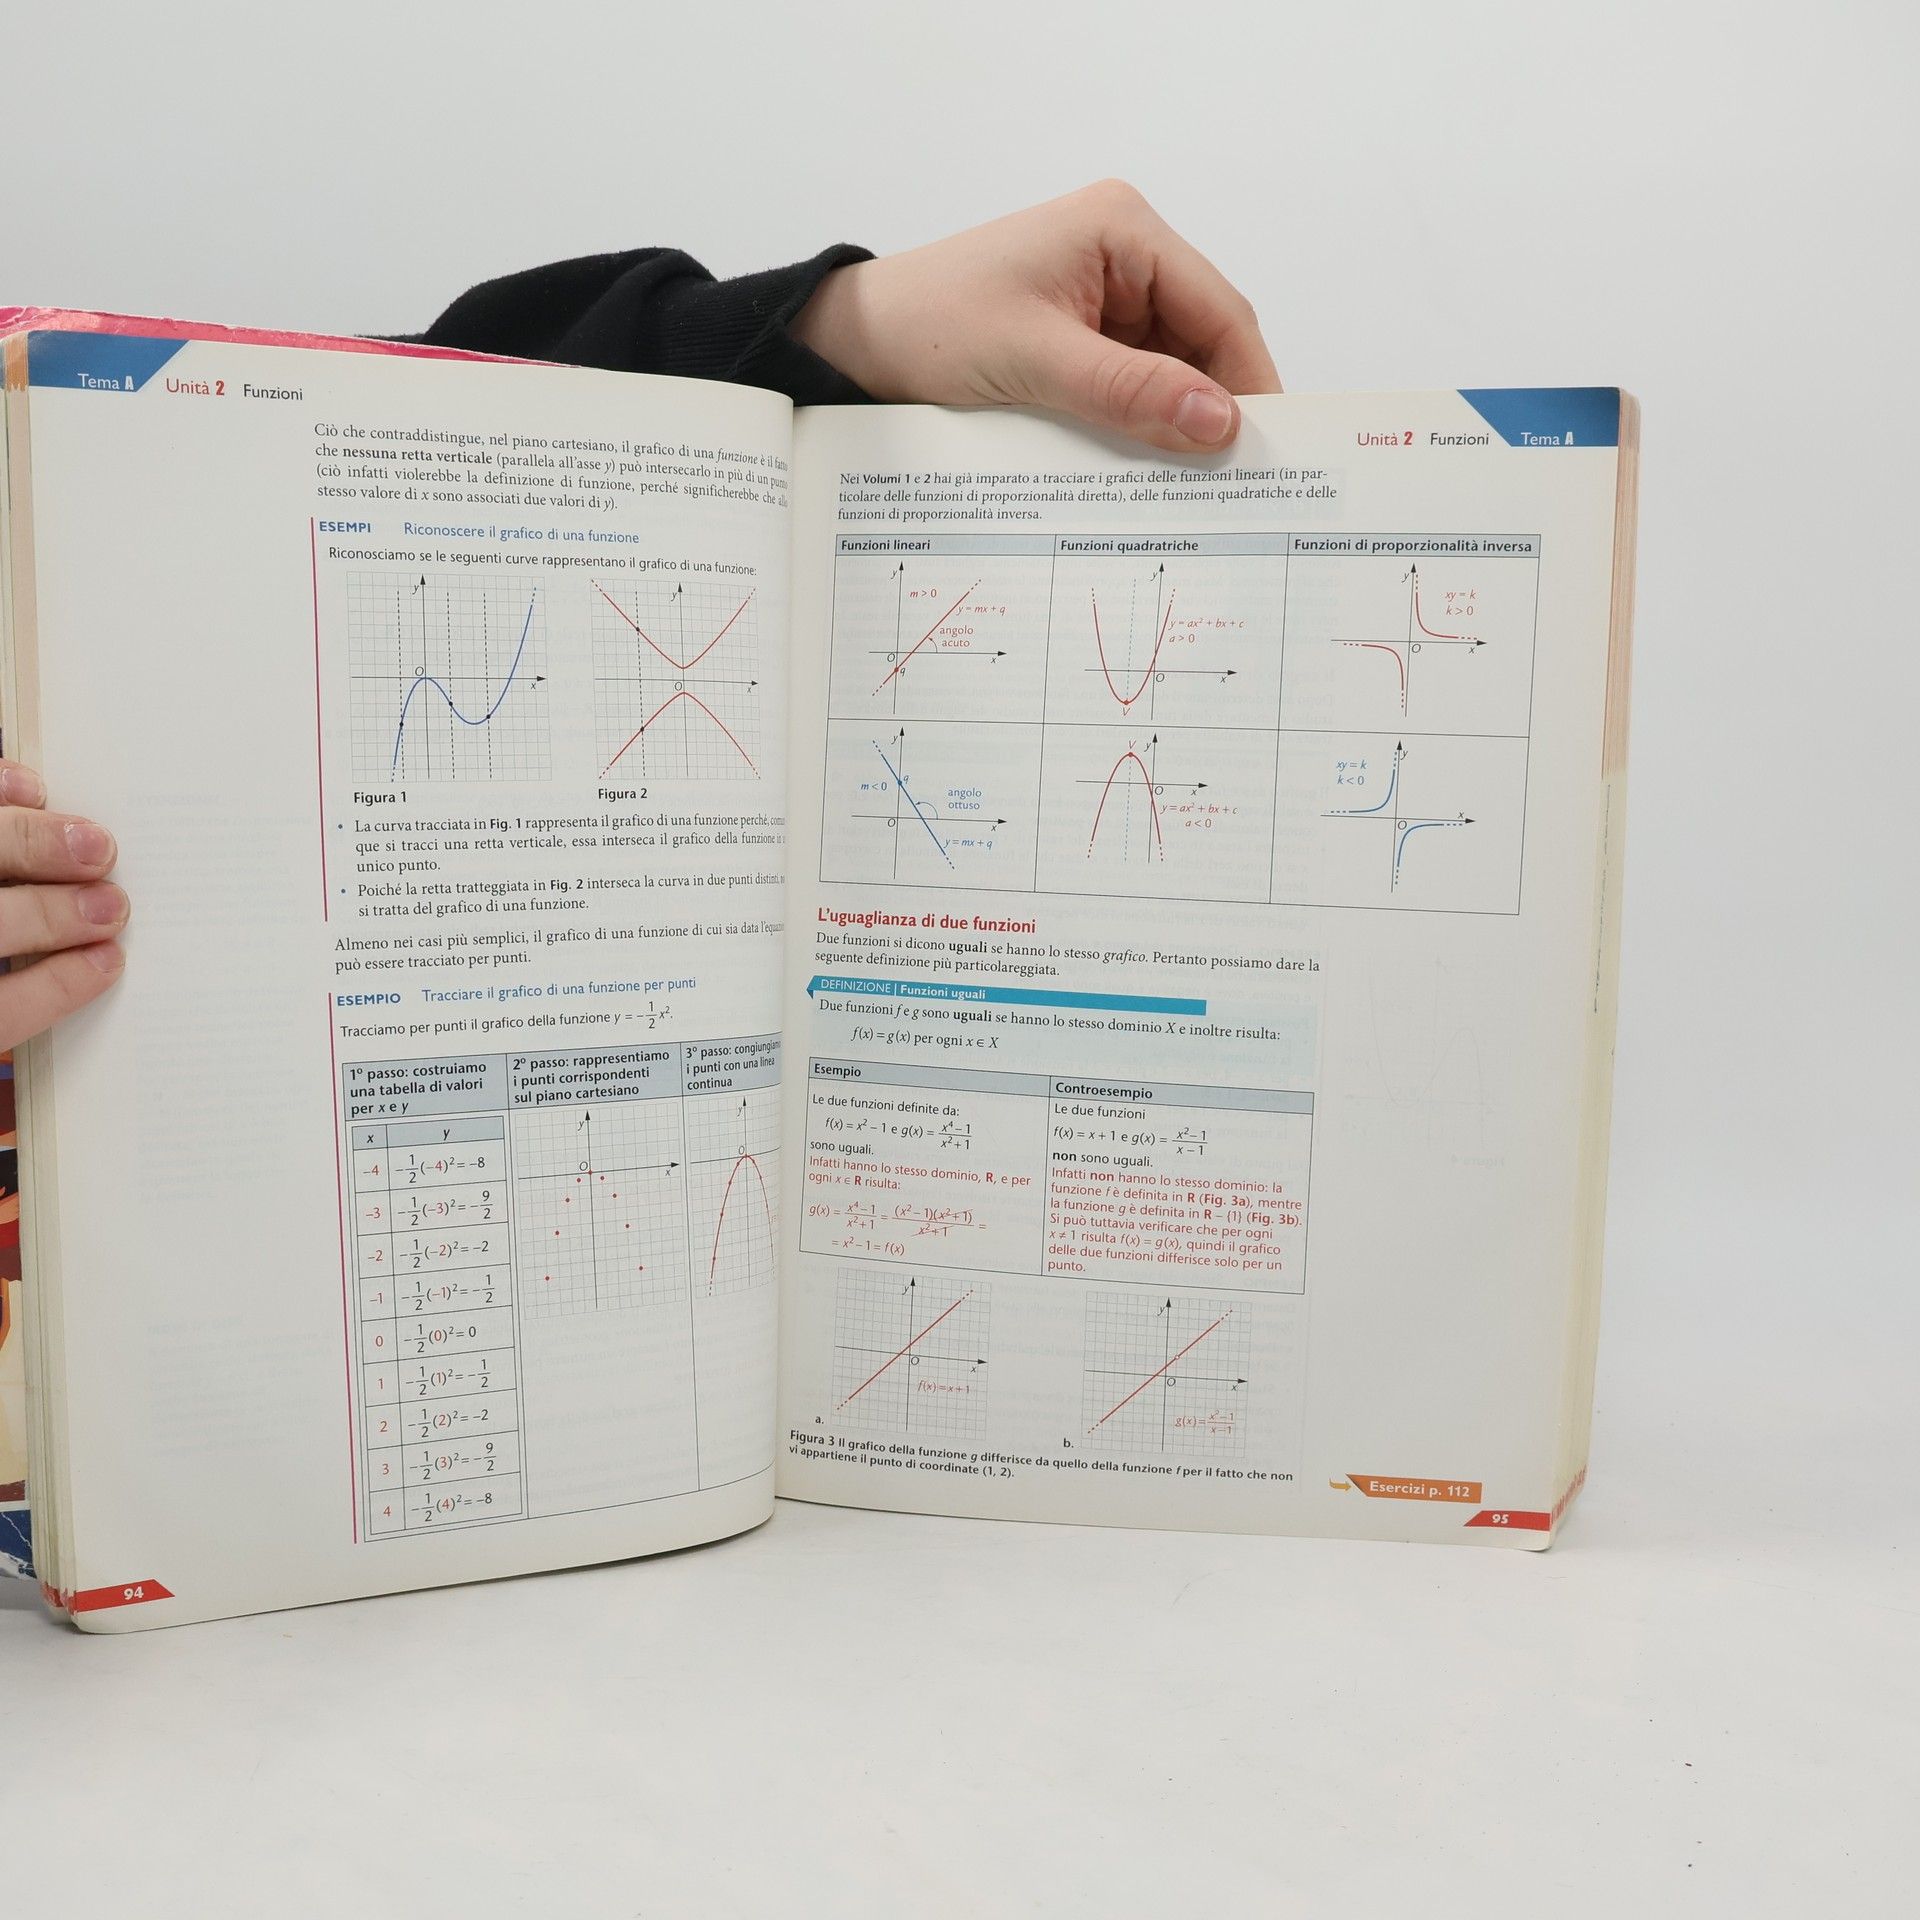 Tema A Unità 2 Funzioni
Ciò che contraddistingue, nel piano cartesiano, il grafico di una funzione è il fatto
che nessuna retta verticale (parallela all'asse y) può intersecarlo in più di un punto
(ciò infatti violerebbe la definizione di funzione, perché significherebbe che
stesso valore di x sono associati due valori di y).
ESEMPI Riconoscere il grafico di una funzione
Riconosciamo se le seguenti curve rappresentano il grafico di una funzione:
y
O
x
y
O
x
Figura 1
Figura 2
• La curva tracciata in Fig. 1 rappresenta il grafico di una funzione perché,
que si tracci una retta verticale, essa interseca il grafico della funzione in
unico punto.
• Poiché la retta tratteggiata in Fig. 2 interseca la curva in due punti distinti,
si tratta del grafico di una funzione.
Almeno nei casi più semplici, il grafico di una funzione di cui sia data
può essere tracciato per punti.
ESEMPIO Tracciare il grafico di una funzione per punti
Tracciamo per punti il grafico della funzione y = −1/2 x².
1º passo: costruiamo
una tabella di valori
per x e y
2º passo: rappresentiamo
i punti corrispondenti
sul piano cartesiano
3º passo: congiungiamo
i punti con una linea
continua
x y
−4 −1/2(−4)² = −8
−3 −1/2(−3)² = −9/2
−2 −1/2(−2)² = −2
−1 −1/2(−1)² = −1/2
0 −1/2(0)² = 0
1 −1/2(1)² = −1/2
2 −1/2(2)² = −2
3 −1/2(3)² = −9/2
4 −1/2(4)² = −8
y
O
x
y
O
94
Unità 2 Funzioni Tema A
Nei Volumi 1 e 2 hai già imparato a tracciare i grafici delle funzioni lineari (in par-
ticolare delle funzioni di proporzionalità diretta), delle funzioni quadratiche e delle
funzioni di proporzionalità inversa.
Funzioni lineari Funzioni quadratriche Funzioni di proporzionalità inversa
y
m > 0
y = mx + q
angolo
acuto
O
x
q
y
y = ax² + bx + c
a > 0
O
x
V
y
xy = k
k > 0
O
x
y
m < 0
q
angolo
ottuso
O
x
y = mx + q
V y
O
x
y = ax² + bx + c
a < 0
y
xy = k
k < 0
O
x
L'uguaglianza di due funzioni
Due funzioni si dicono uguali se hanno lo stesso grafico. Pertanto possiamo dare la
seguente definizione più particolareggiata.
DEFINIZIONE | Funzioni uguali
Due funzioni f e g sono uguali se hanno lo stesso dominio X e inoltre risulta:
f(x) = g(x) per ogni x ∈ X
Esempio
Le due funzioni definite da:
f(x) = x² − 1 e g(x) = (x⁴ − 1)/(x² + 1)
sono uguali.
Infatti hanno lo stesso dominio, R, e per
ogni x ∈ R risulta:
g(x) = (x⁴ − 1)/(x² + 1) = (x² − 1)(x² + 1)/(x² + 1) =
= x² − 1 = f(x)
Controesempio
Le due funzioni
f(x) = x + 1 e g(x) = (x² − 1)/(x − 1)
non sono uguali.
Infatti non hanno lo stesso dominio: la
funzione f è definita in R (Fig. 3a), mentre
la funzione g è definita in R − {1} (Fig. 3b).
Si può tuttavia verificare che per ogni
x ≠ 1 risulta f(x) = g(x), quindi il grafico
delle due funzioni differisce solo per un
punto.
y
O
x
f(x) = x + 1
a.
y
O
x
g(x) = (x² − 1)/(x − 1)
b.
Figura 3 Il grafico della funzione g differisce da quello della funzione f per il fatto che non
vi appartiene il punto di coordinate (1, 2).
Esercizi p. 112
95